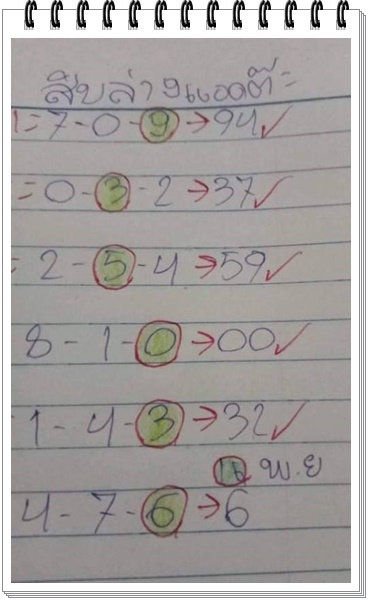 สิบล่าง แอดติ๊=
1=7-0-9→94✓
=0-3-2→37✓
=2-5-4→59✓
8-1-0→00✓
1-4-3→32✓
16 พ.ย
4-7-6→6